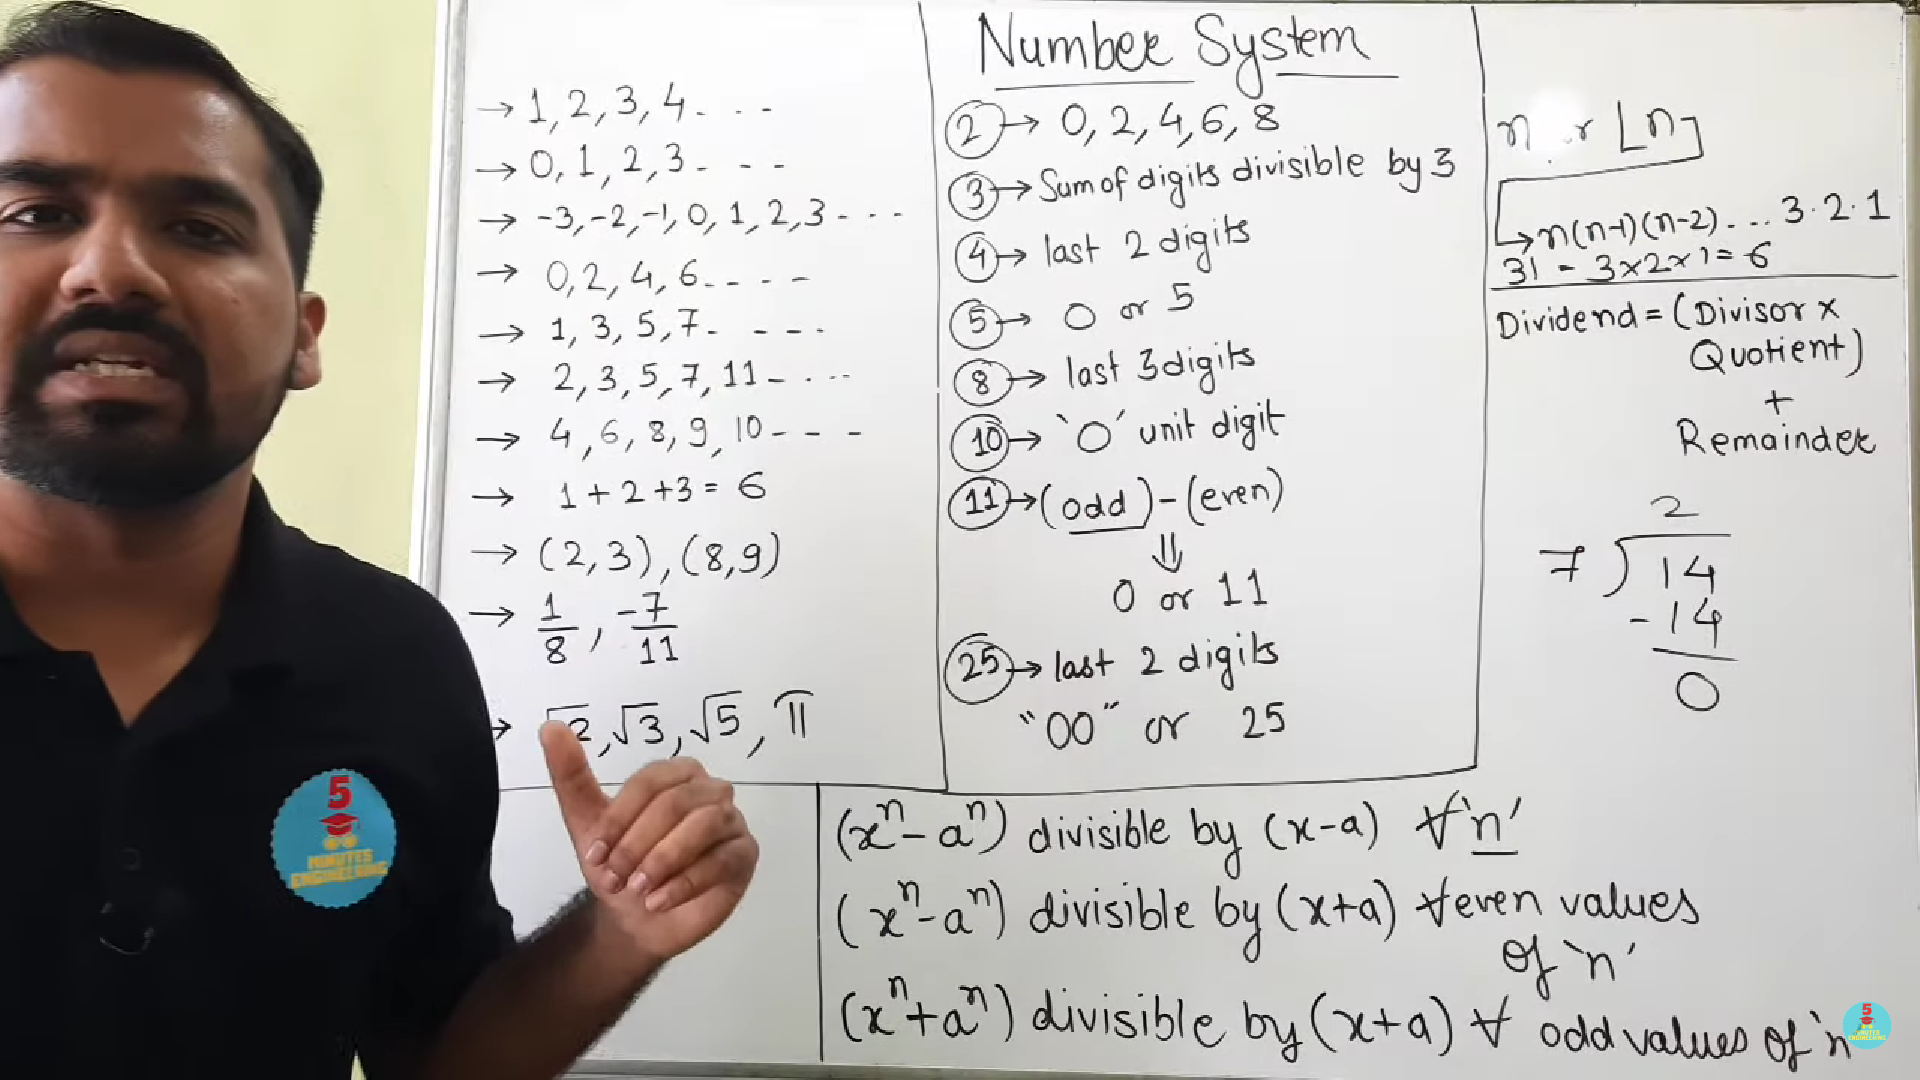 Number System
→ 1, 2, 3, 4 - - -
→ 0, 1, 2, 3 - - -
→ -3, -2, -1, 0, 1, 2, 3 - - -
→ 0, 2, 4, 6 - - - -
→ 1, 3, 5, 7 - - - -
→ 2, 3, 5, 7, 11 - - - -
→ 4, 6, 8, 9, 10 - - -
→ 1 + 2 + 3 = 6
→ (2, 3), (8, 9)
→ 1/8, -7/11
→ √2, √3, √5, π
2 → 0, 2, 4, 6, 8
3 → Sum of digits divisible by 3
4 → last 2 digits
5 → 0 or 5
8 → last 3 digits
10 → '0' unit digit
11 → (odd) - (even)
⇓
0 or 11
25 → last 2 digits
"00" or 25
n r ⌊n
→ n(n-1)(n-2) - ... 3·2·1
3! = 3×2×1 = 6
Dividend = (Divisor ×
Quotient)
+
Remainder
2
7 ) 14
-14
0
(xⁿ - aⁿ) divisible by (x-a) ∀ 'n'
(xⁿ - aⁿ) divisible by (x+a) ∀ even values
of 'n'
(xⁿ + aⁿ) divisible by (x+a) ∀ odd values of 'n
5
MINUTES
ENGINEERING
5
MINUTES
ENGINEERING